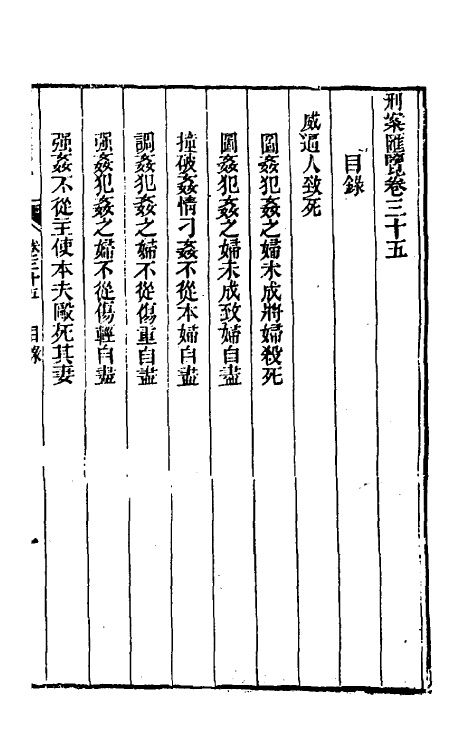 刑案匯覽卷三十五
目錄
威逼人致死
圖姦犯姦之婦未成將婦殺死
圖姦犯姦之婦未成致婦自盡
撞破姦情刁姦不從本婦自盡
調姦犯姦之婦不從傷重自盡
强姦犯姦之婦不從傷輕自盡
强姦不從主使本夫毆死其妻
卷三十五 目錄